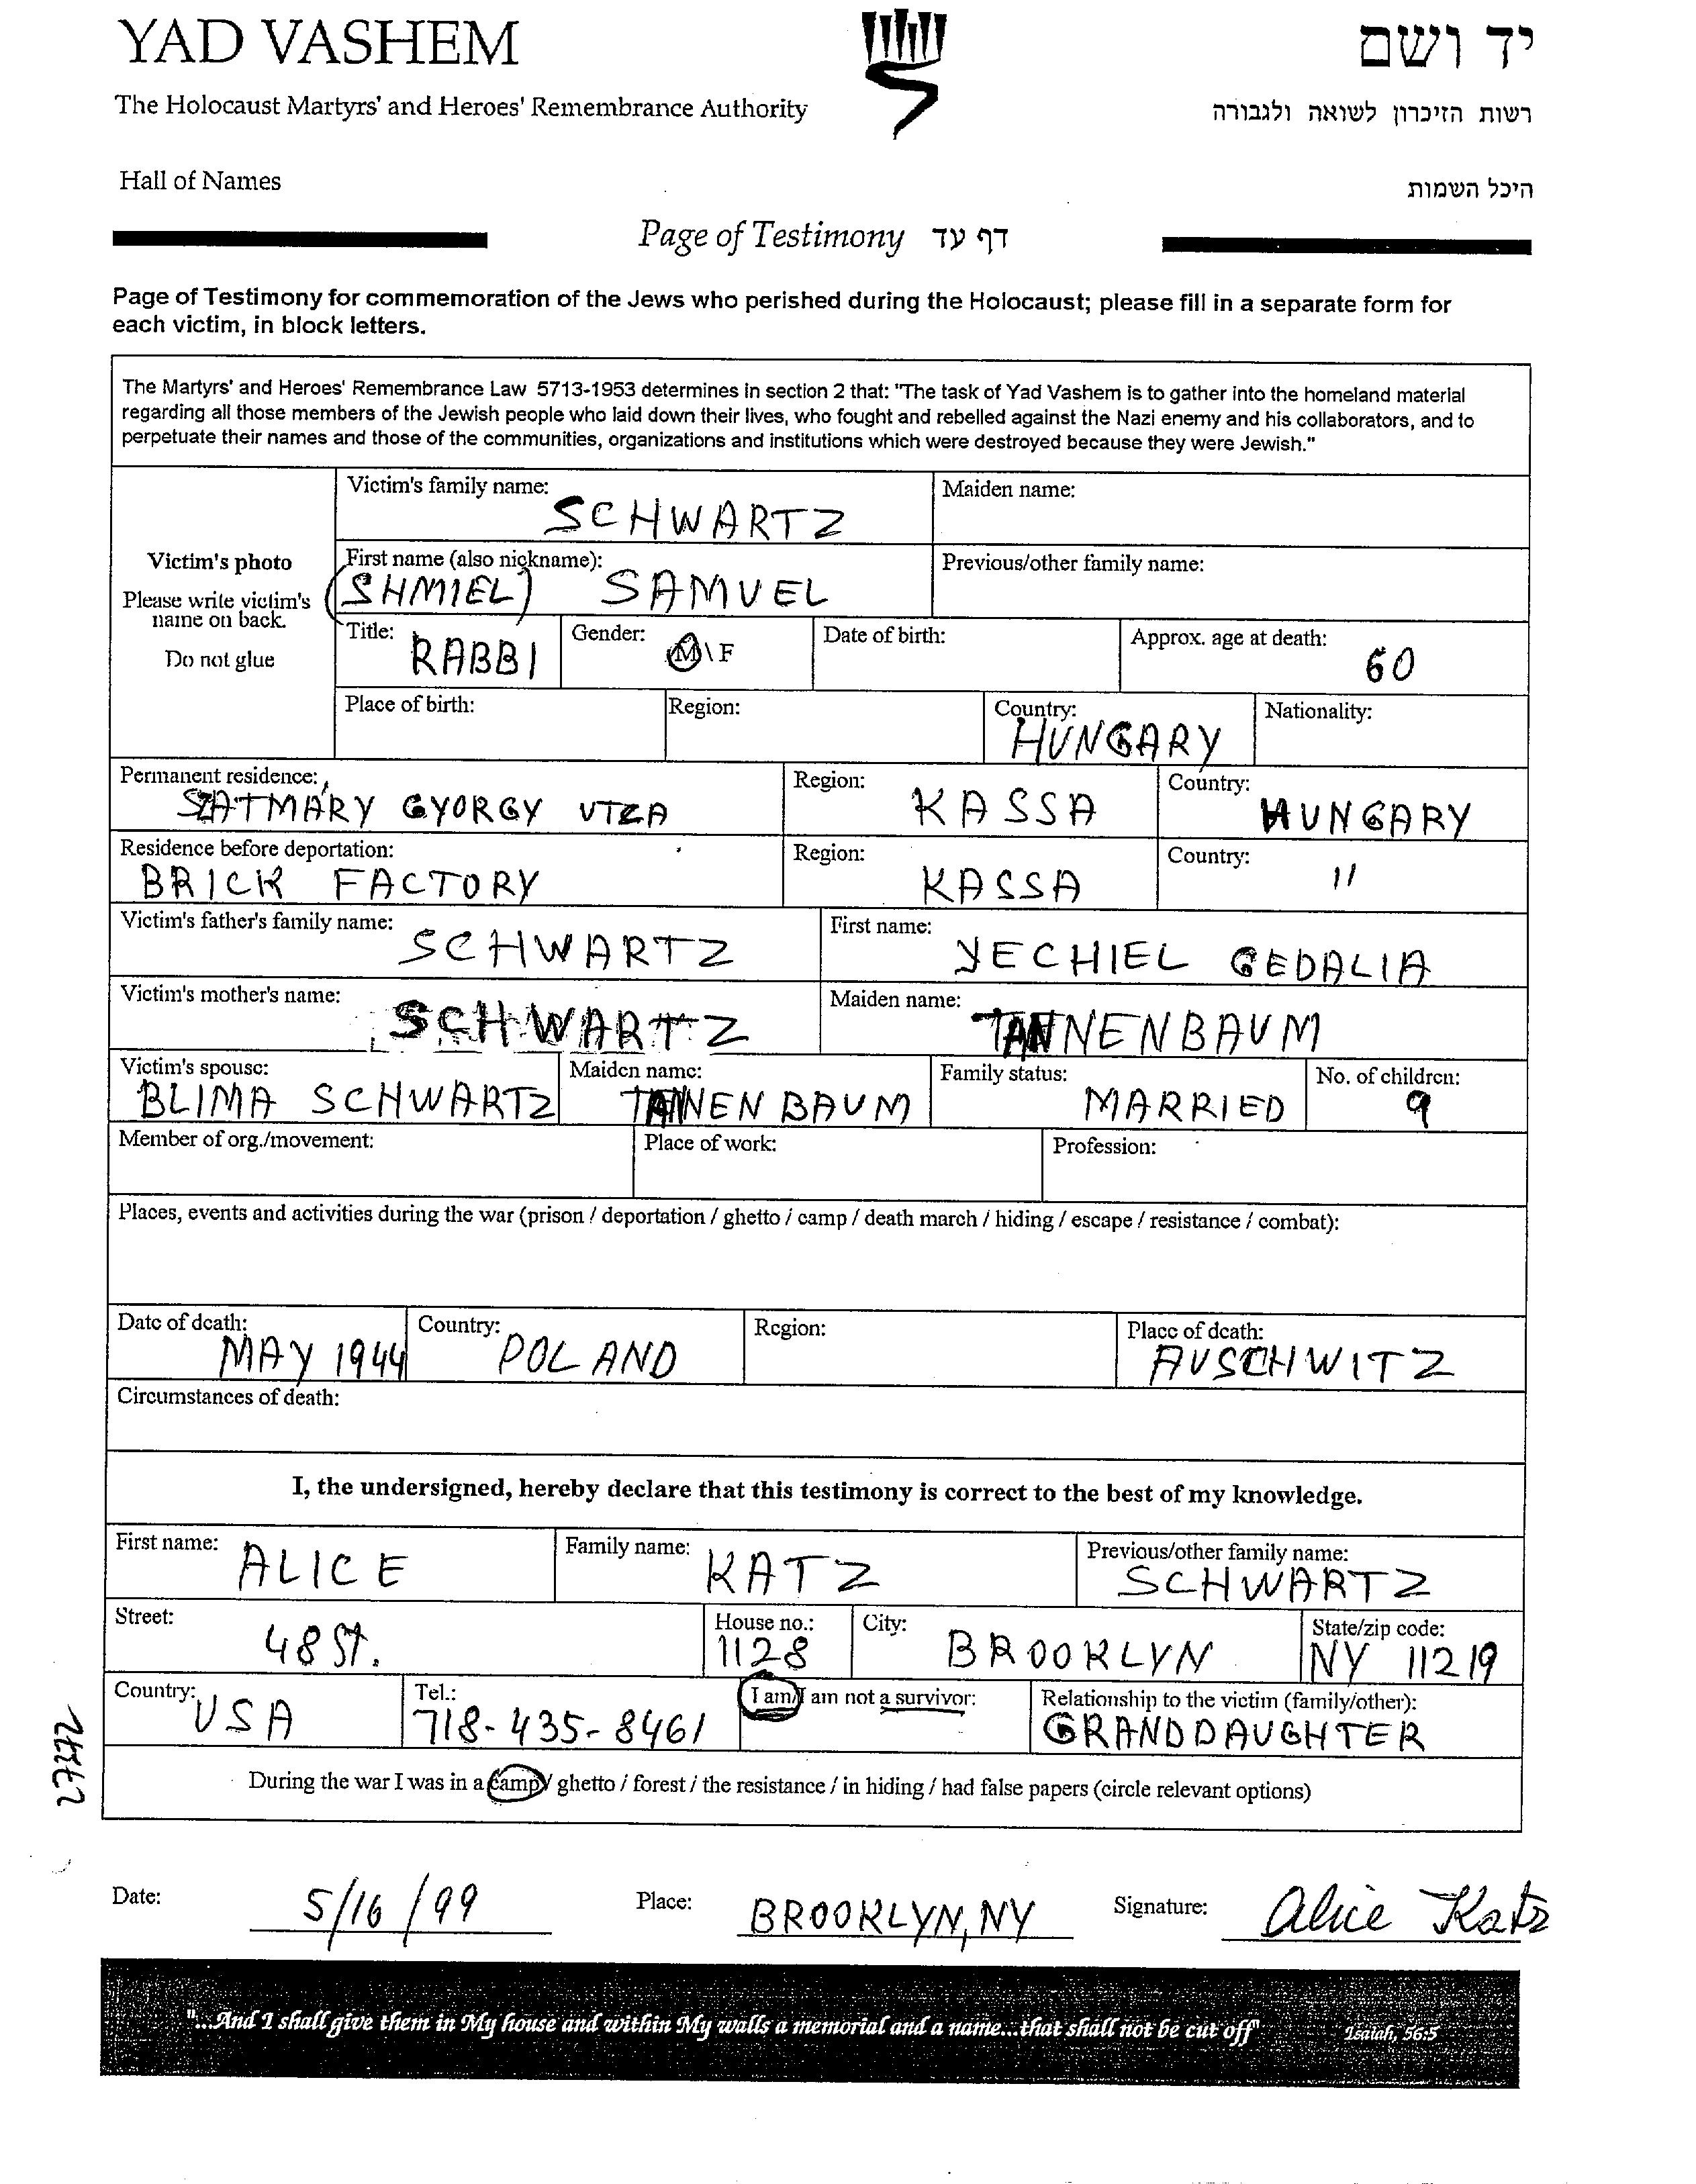 YAD VASHEM
יד ושם
The Holocaust Martyrs' and Heroes' Remembrance Authority
רשות הזיכרון לשואה ולגבורה
Hall of Names
היכל השמות
Page of Testimony דף עד
Page of Testimony for commemoration of the Jews who perished during the Holocaust; please fill in a separate form for
each victim, in block letters.
The Martyrs' and Heroes' Remembrance Law 5713-1953 determines in section 2 that: "The task of Yad Vashem is to gather into the homeland material
regarding all those members of the Jewish people who laid down their lives, who fought and rebelled against the Nazi enemy and his collaborators, and to
perpetuate their names and those of the communities, organizations and institutions which were destroyed because they were Jewish."
Victim's photo
Please write victim's
name on back.
Do not glue
Victim's family name: SCHWARTZ
Maiden name:
First name (also nickname): (SHMIEL) SAMUEL
Previous/other family name:
Title: RABBI
Gender: M\F
Date of birth:
Approx. age at death: 60
Place of birth:
Region:
Country: HUNGARY
Nationality:
Permanent residence: SZATMÁRY GYORGY UTZA
Region: KASSA
Country: HUNGARY
Residence before deportation: BRICK FACTORY
Region: KASSA
Country: "
Victim's father's family name: SCHWARTZ
First name: YECHIEL GEDALIA
Victim's mother's name: SCHWARTZ
Maiden name: TANNENBAUM
Victim's spouse: BLIMA SCHWARTZ
Maiden name: TANNENBAUM
Family status: MARRIED
No. of children: 9
Member of org./movement:
Place of work:
Profession:
Places, events and activities during the war (prison / deportation / ghetto / camp / death march / hiding / escape / resistance / combat):
Date of death: MAY 1944
Country: POLAND
Region:
Place of death: AUSCHWITZ
Circumstances of death:
I, the undersigned, hereby declare that this testimony is correct to the best of my knowledge.
First name: ALICE
Family name: KATZ
Previous/other family name: SCHWARTZ
Street: 48 St.
House no.: 1128
City: BROOKLYN
State/zip code: NY 11219
Country: USA
Tel.: 718-435-8461
I am/I am not a survivor:
Relationship to the victim (family/other): GRANDDAUGHTER
During the war I was in a camp/ ghetto / forest / the resistance / in hiding / had false papers (circle relevant options)
Date: 5/16/99
Place: BROOKLYN, NY
Signature: Alice Katz
"...And I shall give them in My house and within My walls a memorial and a name...that shall not be cut off" Isaiah, 56:5